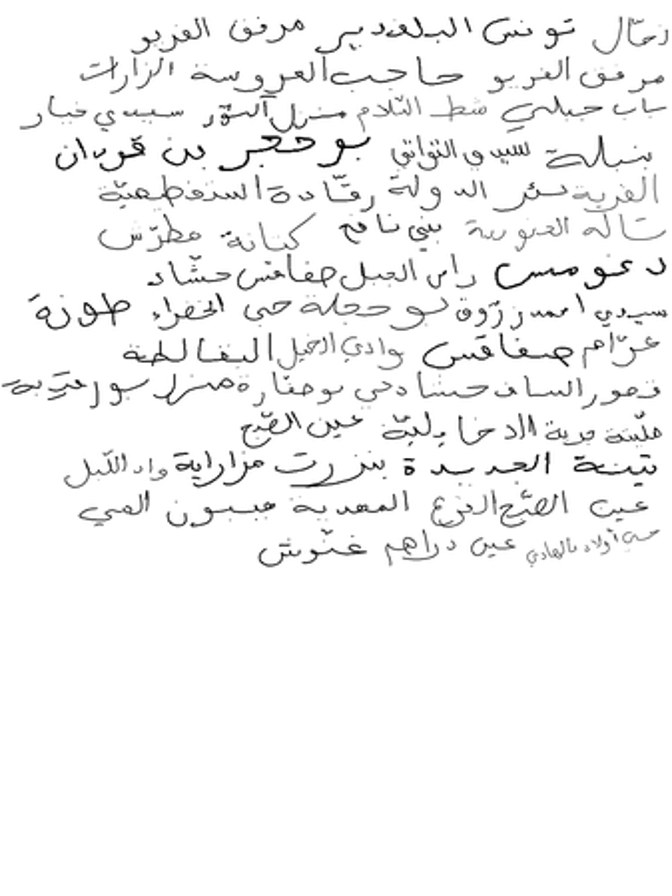 تونس البلفدير مرفق الغريو
مرفق الغريو حاجب العروسة الزارات
باب جبلي شط السّلام منزل النور سيدي خيار
بنبلة سيدي التواتي بوحجر بن قردان
القرية بئر الدولة رقّادة
بني نافع كتانة مطرّش
دغومس راس الجبل صفاقس حشّاد
سيدي احمد زرّوق بوحجلة حي الخضراء طوزة
عرّام صفاقس وادي الخيل البقالطة
قصور الساف حشاد حي بوصفارة منزل بورقيبة
ملّيتة جربة الدخايليّة عين الصّبح
تينجة الجديدة بنزرت مزاراية واد اللّيل
عين الصّبح الفرع المهدية
حي أولاد بالهادي عين دراهم غنّوش